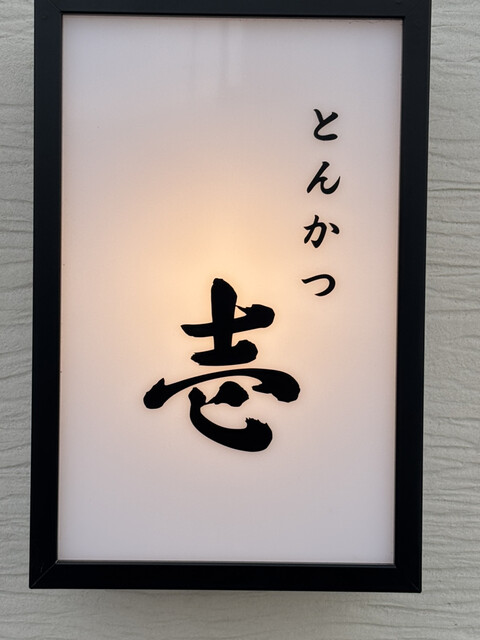 とんかつ
壱